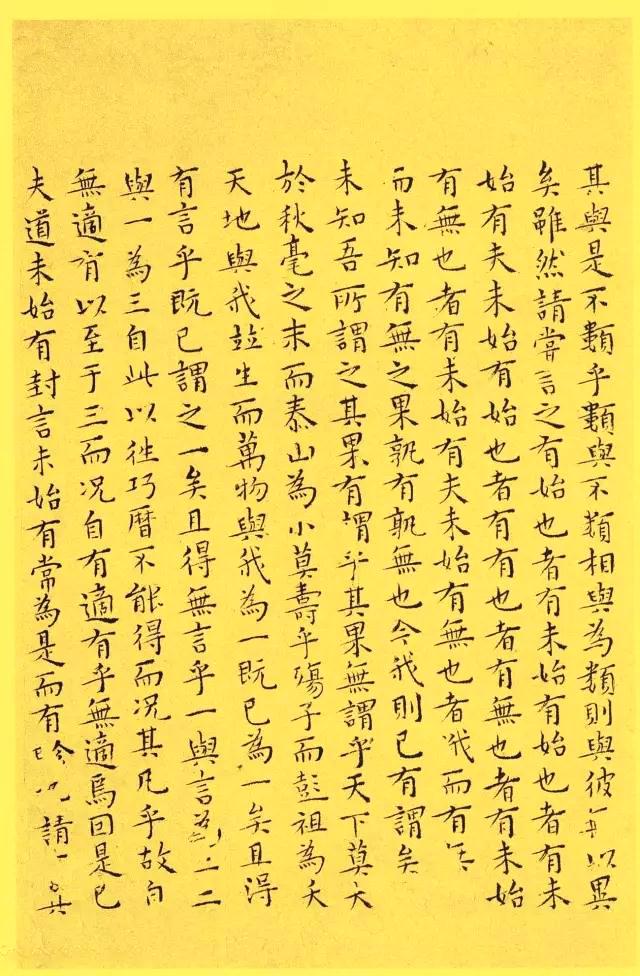 其與是不類乎類與不類相與為類則與彼無以異
矣雖然請嘗言之有始也者有未始有始也者有未
始有夫未始有始也者有有也者有無也者有未始
有無也者有未始有夫未始有無也者 而有
而未知有無之果孰有孰無也今我則已有謂矣
未知吾所謂之其果有謂乎其果無謂乎天下莫大
於秋毫之末而泰山為小莫壽乎殤子而彭祖為夭
天地與我竝生而萬物與我為一既已為一矣且得
有言乎既已謂之一矣且得無言乎一與言為二二
與一為三自此以往巧曆不能得而況其凡乎故自
無適有以至于三而況自有適有乎無適焉因是已
夫道未始有封言未始有常為是而有畛也請